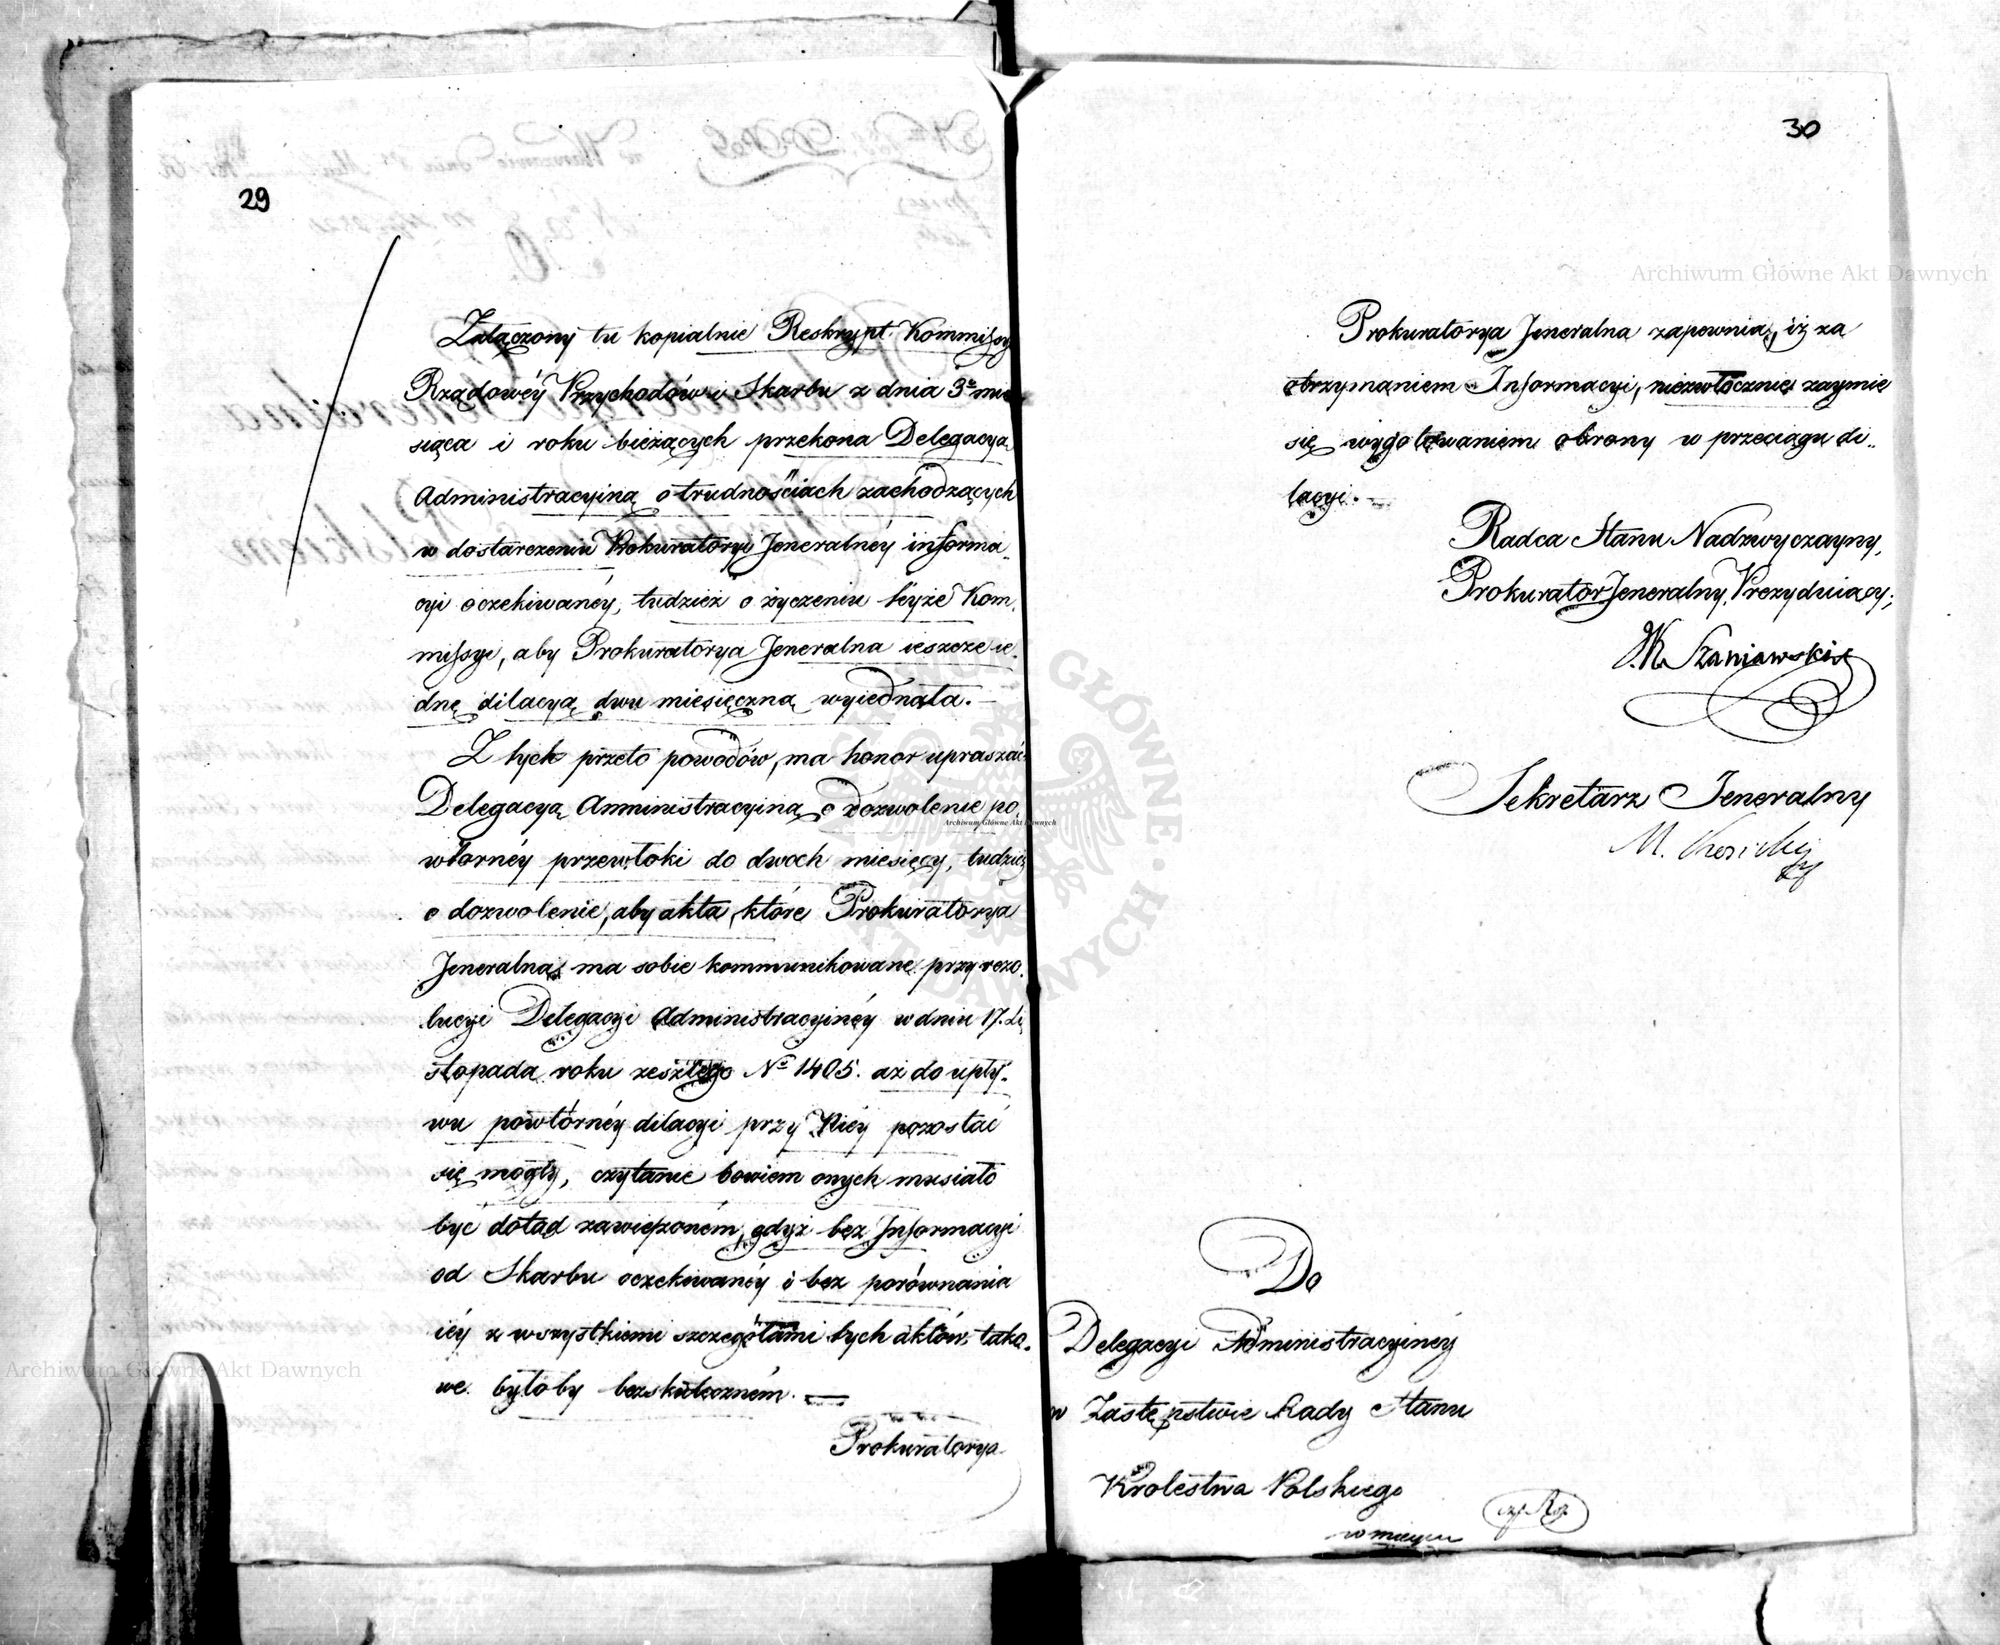 29
Załączony tu kopialnie Reskrypt Kommissyi
Rządowéy Przychodów i Skarbu z dnia 3º mie
siąca i roku bieżących przekona Delegacyą
Administracyiną o trudnościach zachodzących
w dostarczeniu Prokuratoryi Jeneralnéy informa„
cyi oczekiwanéy, tudzież o życzeniu teyże Kom„
missyi, aby Prokuratorya Jeneralna ieszcze ie„
dnę dilacyą dwu miesięczną wyiednała. —
Z tych przeto powodów, ma honor upraszać
Delegacyą Amministracyiną o dozwolenie po„
wtórnéy przewłoki do dwóch miesięcy, tudzież
o dozwolenie, aby akta, które Prokuratorya
Jeneralna ma sobie kommunikowane przy rezo„
lucyi Delegacyi Administracyinéy w dniu 17. Li„
stopada roku zeszłego Nº 1405. aż do upły„
wu powtórnéy dilacyi przy Niéy pozostać
się mogły, czytanie bowiem onych musiało
być dotąd zawieszoném, gdyż bez Informacyi
od Skarbu oczekiwanéy i bez porównania
iéy z wszystkiemi szczegółami tych aktów, tako„
we byłoby bezskuteczném. —
Prokuratorya
30
Prokuratorya Jeneralna zapewnia, iż za
otrzymaniem Informacyi, niezwłocznie zaymie
się wygotowaniem obrony w przeciągu di„
lacyi. —
Radca Stanu Nadzwyczayny,
Prokurator Jeneralny, Prezyduiący;
J. K. Szaniawski
Sekretarz Jeneralny
M.
Do
Delegacyi Administracyinéy
w Zastępstwie Rady Stanu
Krolestwa Polskiego
w mieyscu
Archiwum Główne Akt Dawnych
Archiwum Główne Akt Dawnych
Archiwum Główne Akt Dawnych
ARCHIWUM GŁÓWNE AKT DAWNYCH